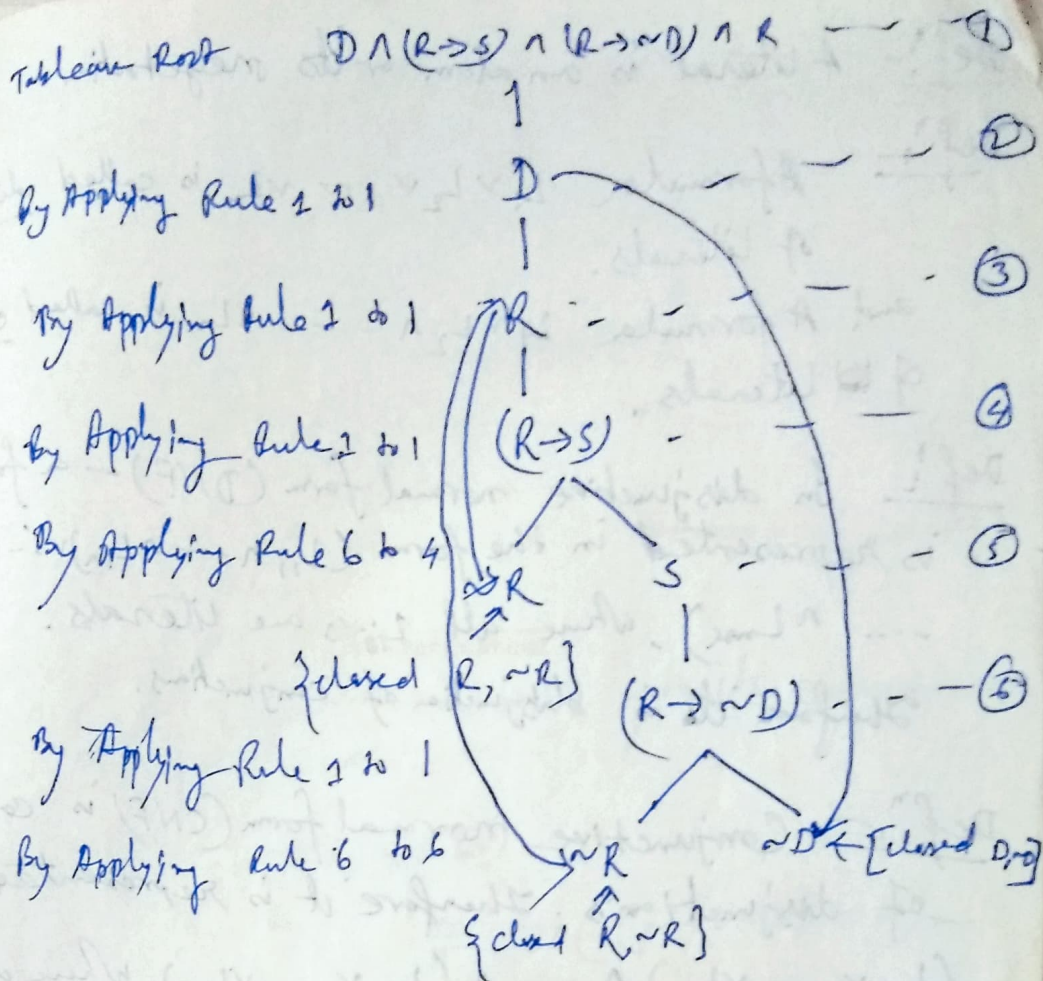 Tableau Root D ∧ (R→S) ∧ (R→~D) ∧ R ①
D ②
By Applying Rule 1 to 1
R ③
By Applying Rule 1 to 1
(R→S) ④
By Applying Rule 1 to 1
By Applying Rule 6 to 4 ~R S ⑤
{closed R, ~R}
(R→~D) ⑥
By Applying Rule 1 to 1
By Applying Rule 6 to 6 ~R ~D ← [closed D,~D]
{closed R,~R}